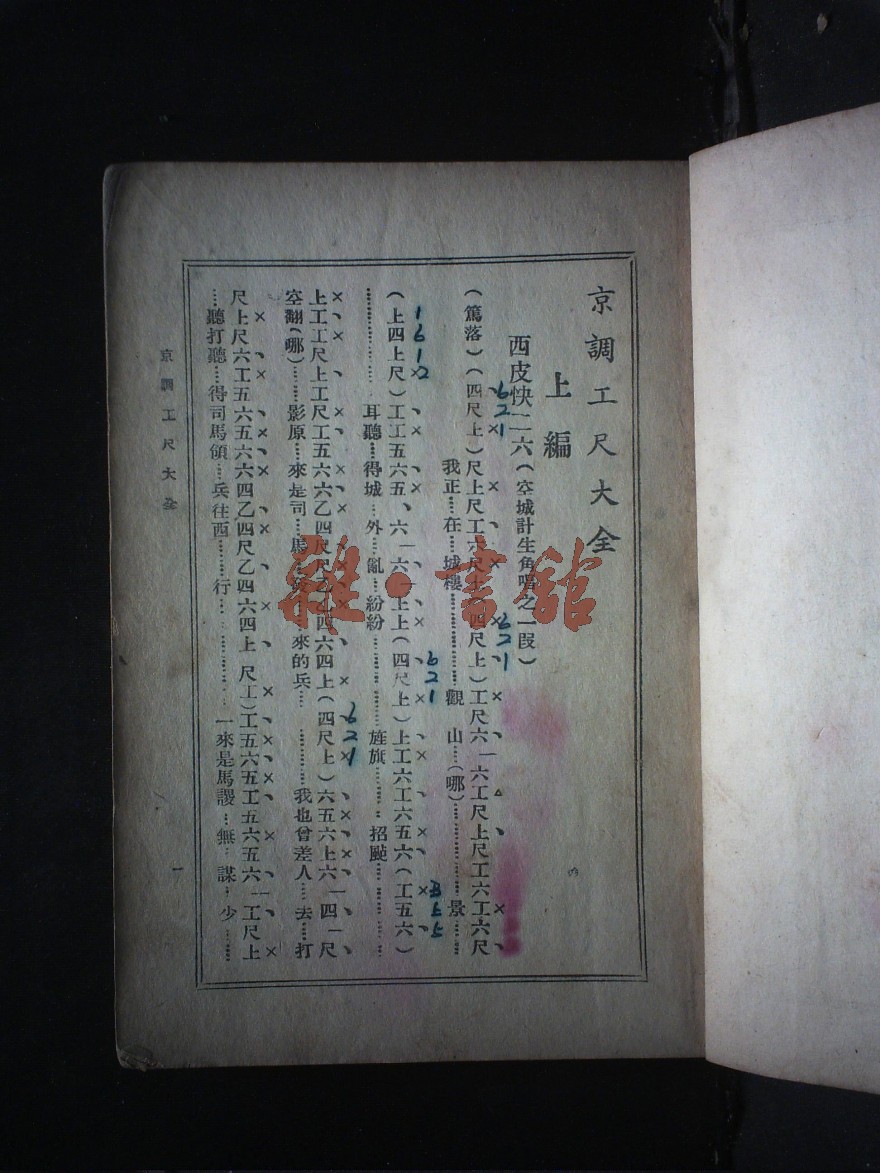 京調工尺大全
上編
西皮快二六(空城計生角唱之一段)
(篤落)(四尺上)尺上尺工六尺上四尺上)工尺六一六工尺上尺工六工六尺
621
621
我正……在…城樓………觀山……(哪)………景……
(上四上尺)工工五六五、六一六一上上(四尺上)上工六工六五六(工五六)
1612
621
355
………耳聽…得城…外…亂…紛紛………旌旗………招颭………
上工工尺上工尺工五六六乙四尺尺乙四六四上(四尺上)六五六上六一四一尺
621
空翻(哪)……影原…來是司…馬…來的兵………我也曾差人…去…打
尺上尺六工五六五六六四乙四尺乙四六四上尺工)工五六五工五六五六一工尺上
…聽打聽…得司馬領…兵往西……行………一來是馬謖…無…謀…少……
京調工尺大全
一
雜·書館